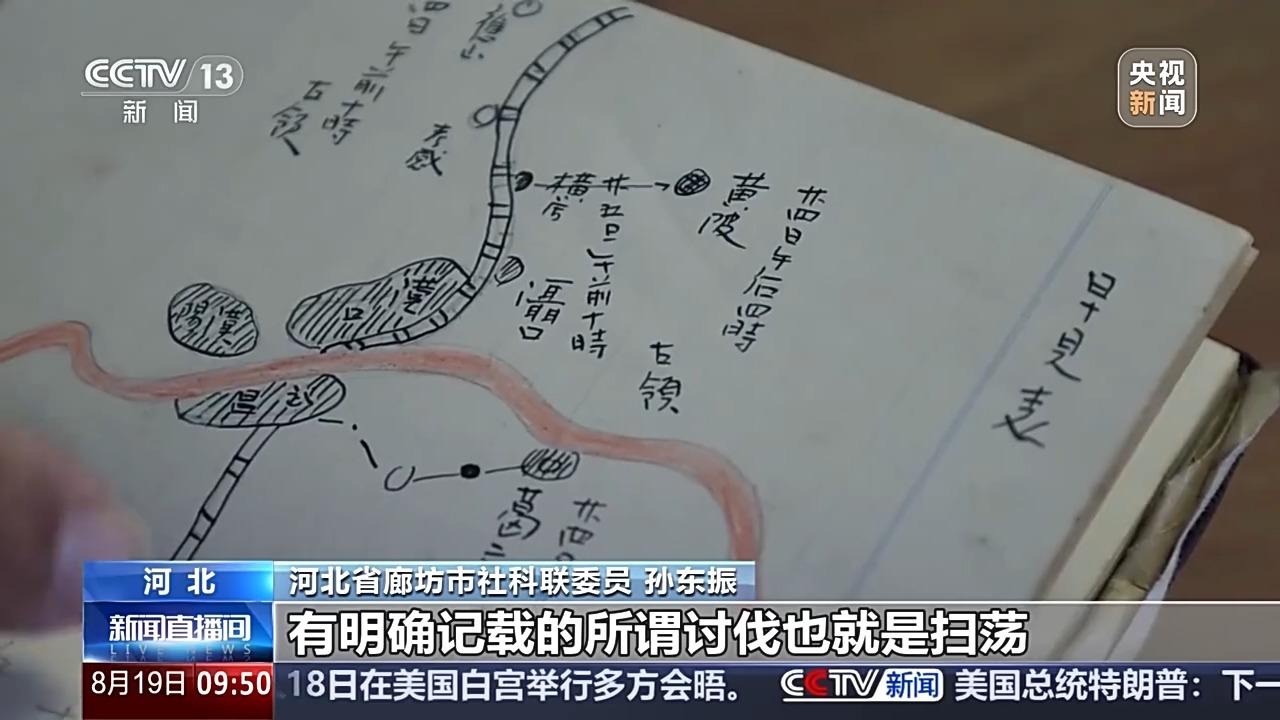 CCTV 13
新闻
央视
新闻
四日午前十時
古領
孝感
横
廿五日午前十時
黄陂
廿四日午后四時
灄口
古領
漢口
漢陽
武昌
葛
廿四
早見表
河北
河北省廊坊市社科联委员 孙东振
新闻直播间
LIVE NEWS
有明确记载的所谓讨伐也就是扫荡
8月19日 09:50
18日在美国白宫举行多方会晤。 CCTV新闻 美国总统特朗普：下一